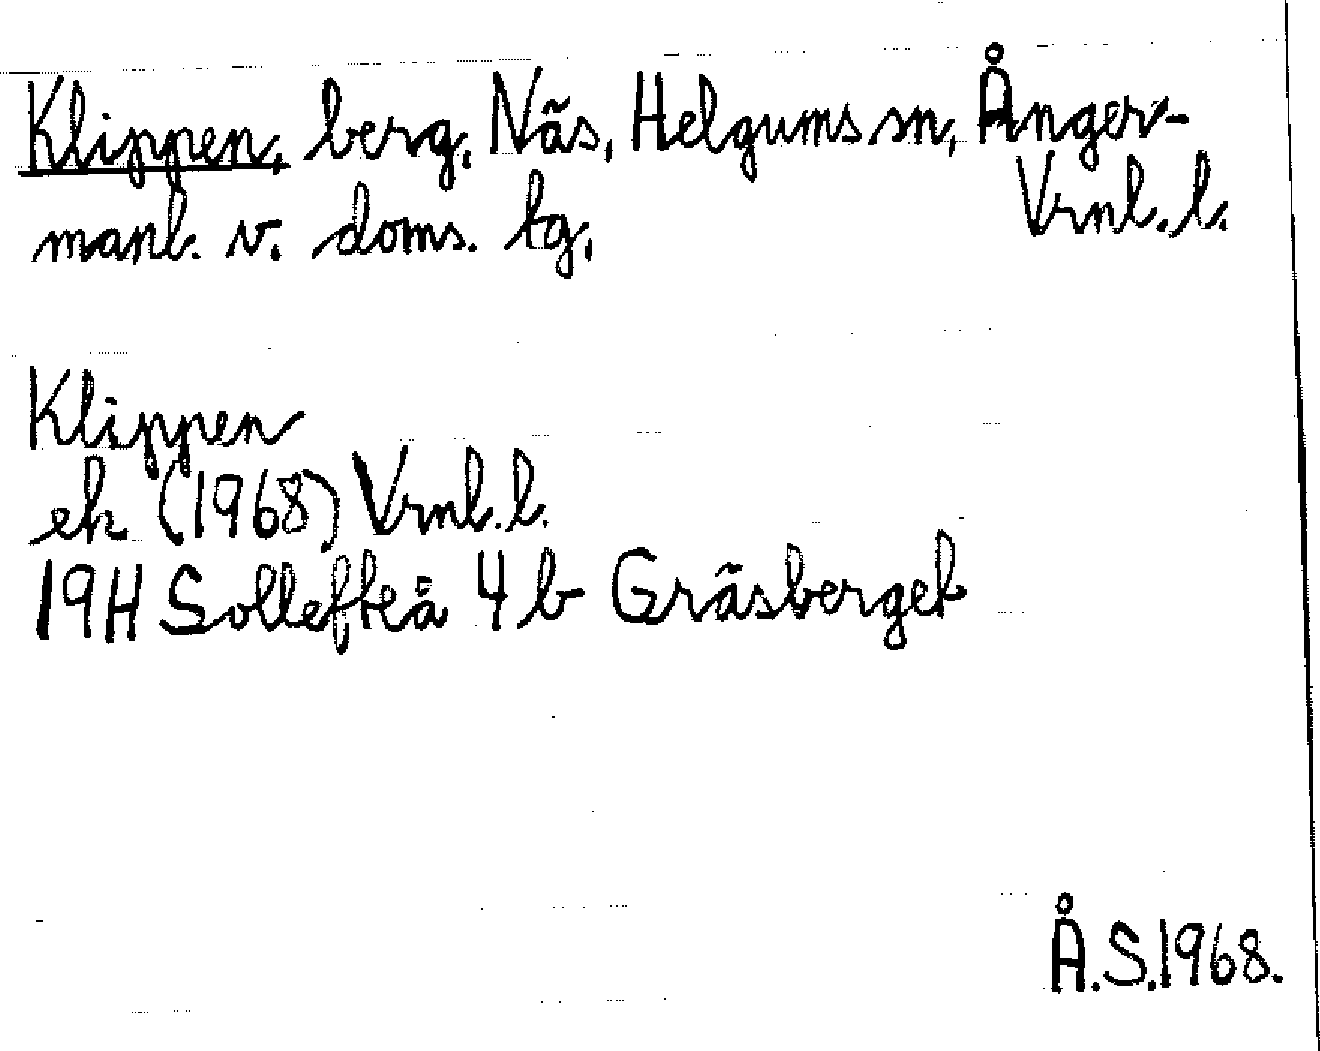 Klippen, berg, Näs, Helgums sn, Ånger-
manl. v. doms. tg,
Vrnl. l.
Klippen
ek (1968) Vrnl. l.
19H Sollefteå 4 b Gräsberget
Å.S. 1968.